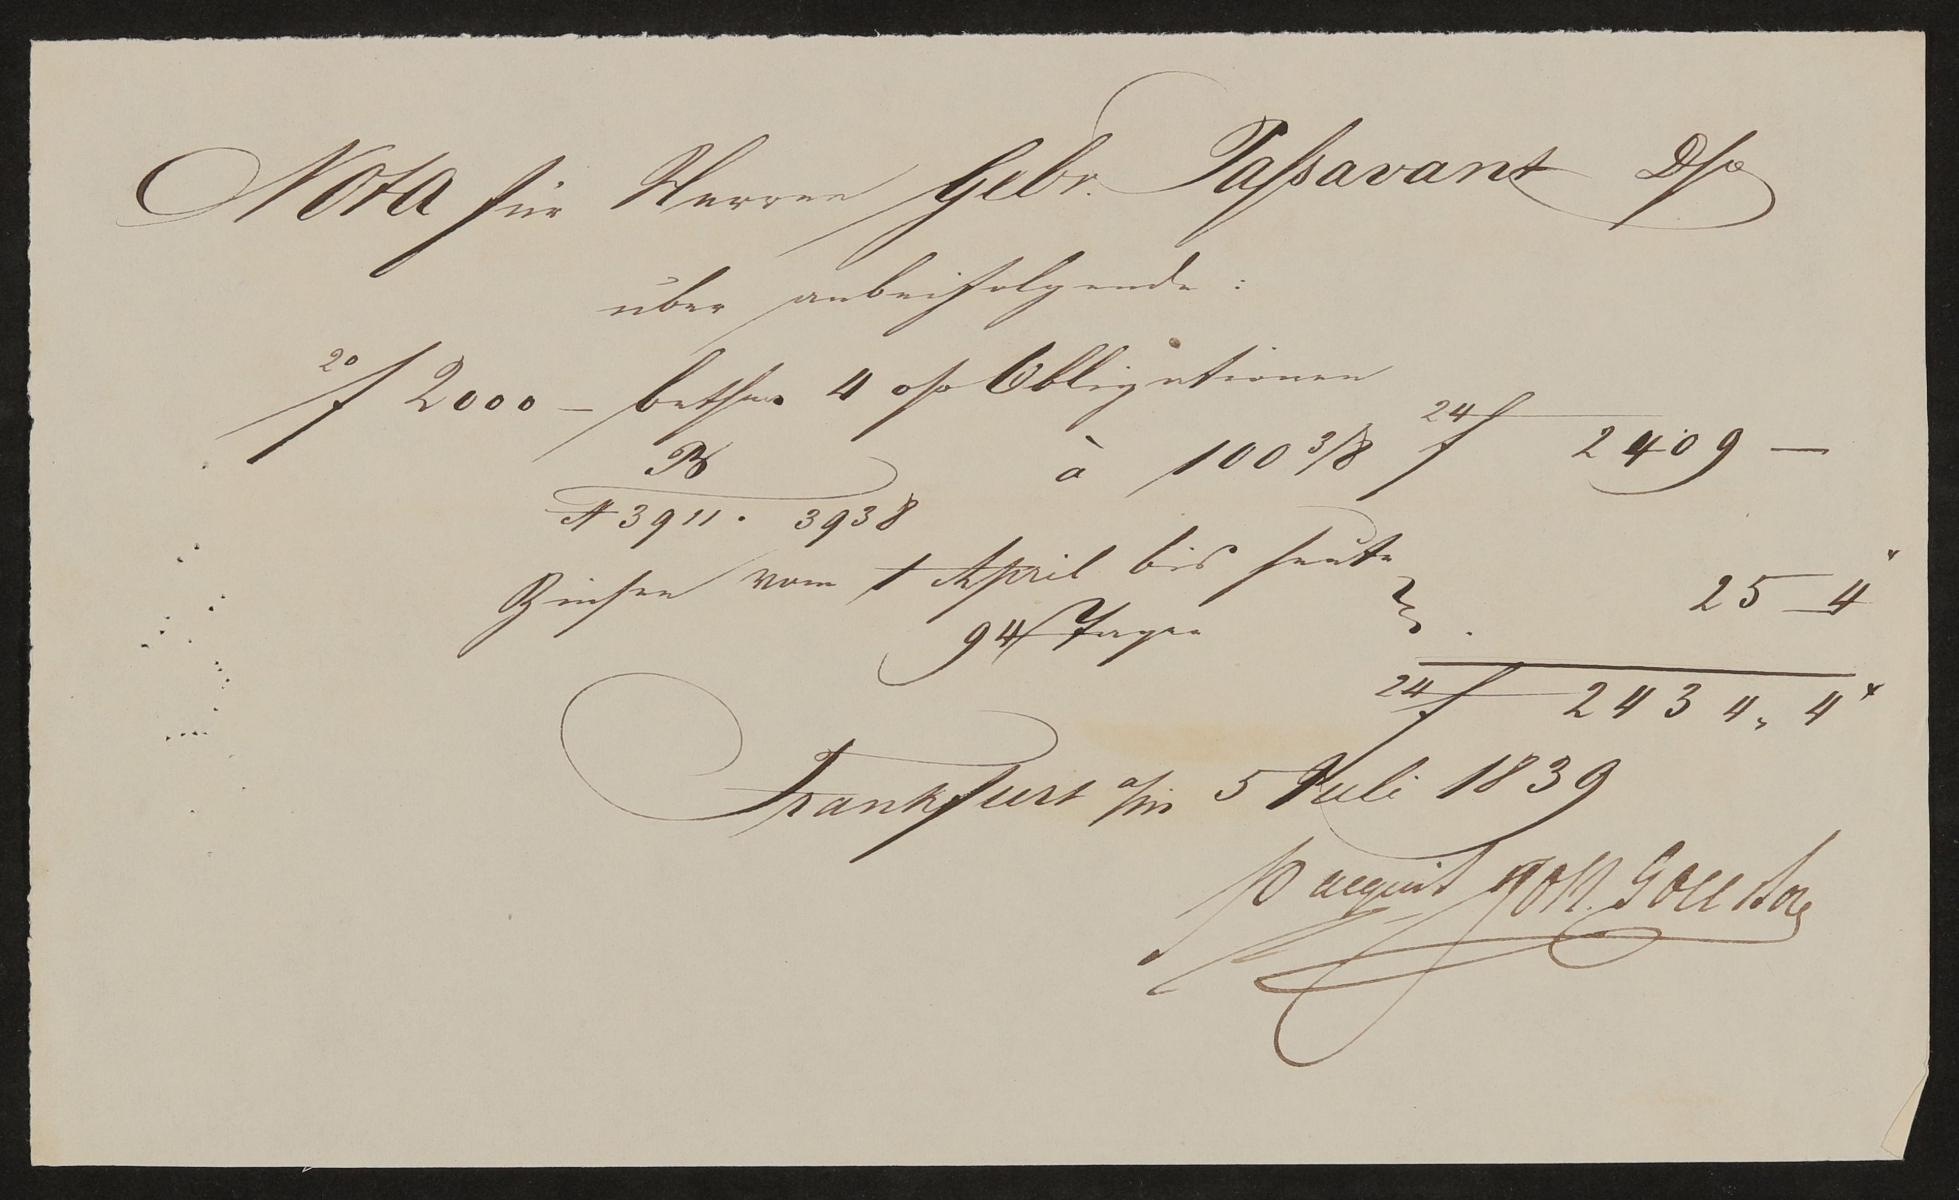 Nota für Herren Gebr. Paſsavant
über anbeifolgende:
20/f 2000 — bethm. 4 o/o Obligationen
à 100 3/8 24/f 2409 —
A 3911. 3938
Zinsen vom 1 April bis heute
94 Tage 25 — 4 x
24/f 2434, 4 x
Frankfurt a/m 5 Juli 1839
p acquit Joh. Goll Söhne